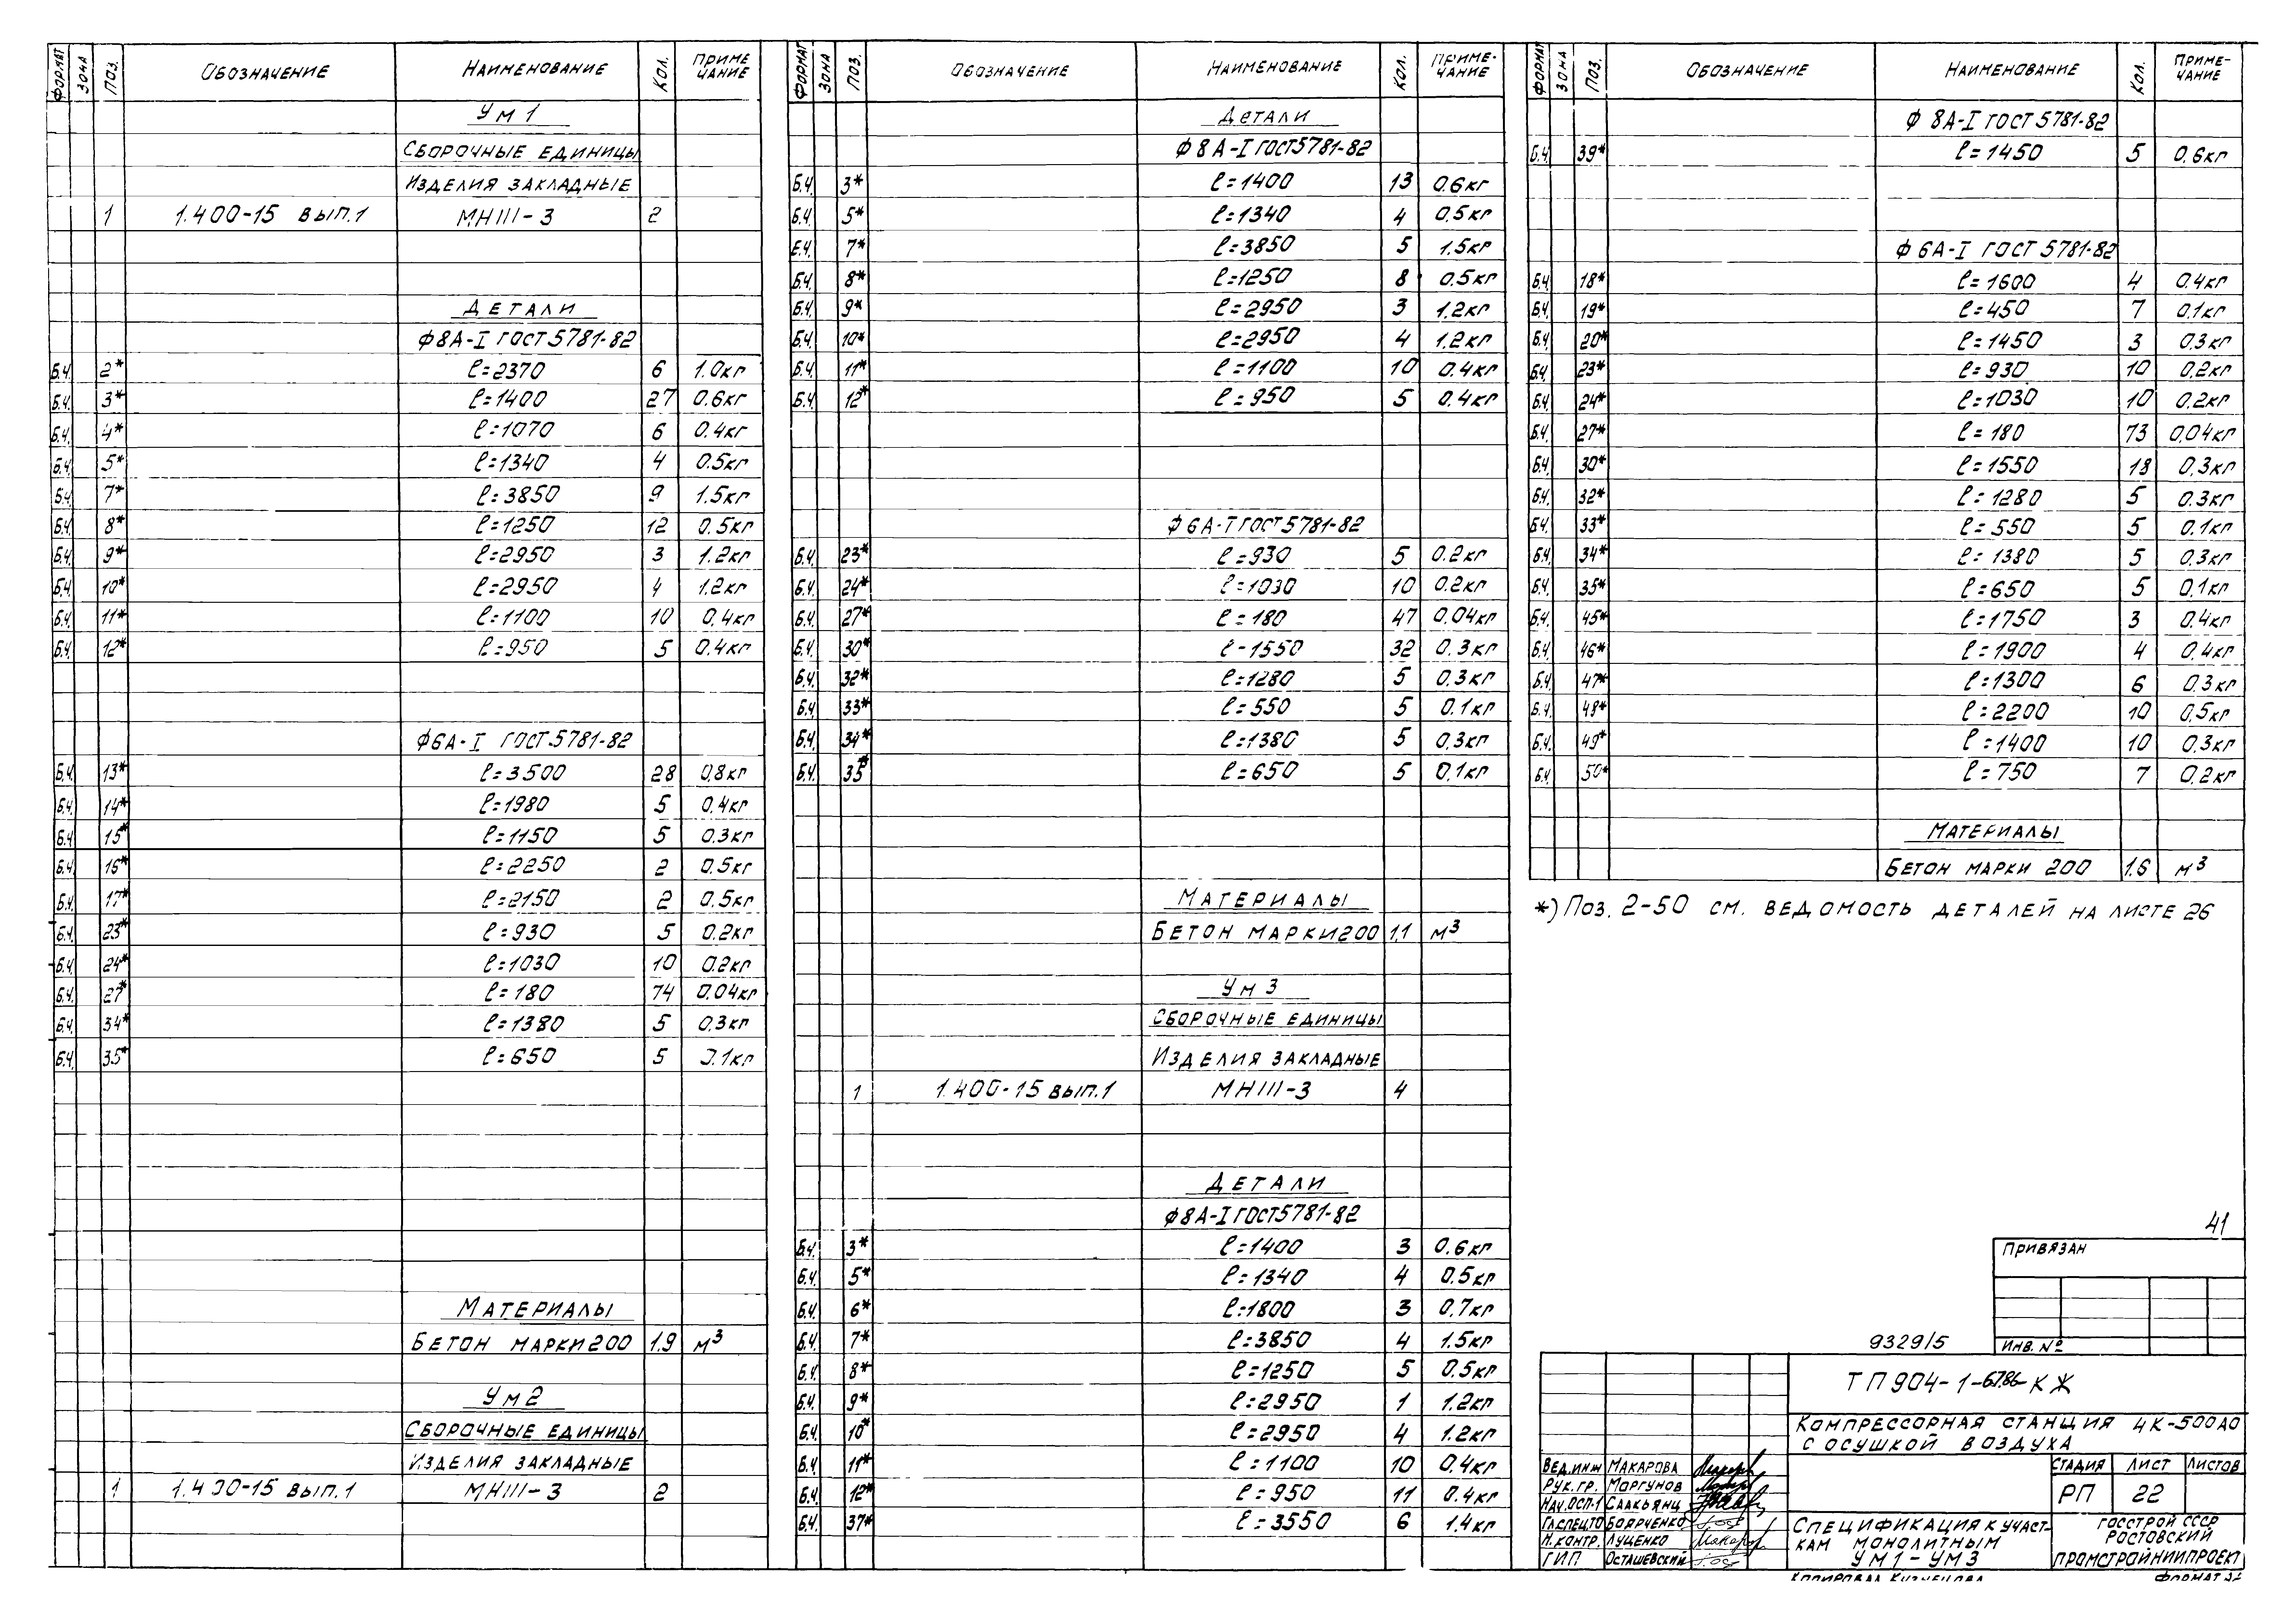 Формат Зона Поз. Обозначение Наименование Кол. Приме чание
Ум 1
Сборочные единицы
Изделия закладные
1 1.400-15 вып.1 МН111-3 2
Детали
Ф8А-I ГОСТ 5781-82
Б.Ч. 2* ℓ=2370 6 1.0кг
Б.Ч. 3* ℓ=1400 27 0.6кг
Б.Ч. 4* ℓ=1070 6 0.4кг
Б.Ч. 5* ℓ=1340 4 0.5кг
Б.Ч. 7* ℓ=3850 9 1.5кг
Б.Ч. 8* ℓ=1250 12 0.5кг
Б.Ч. 9* ℓ=2950 3 1.2кг
Б.Ч. 10* ℓ=2950 4 1.2кг
Б.Ч. 11* ℓ=1100 10 0.4кг
Б.Ч. 12* ℓ=950 5 0.4кг
Ф6А-I ГОСТ 5781-82
Б.Ч. 13* ℓ=3500 28 0.8кг
Б.Ч. 14* ℓ=1980 5 0.4кг
Б.Ч. 15* ℓ=1150 5 0.3кг
Б.Ч. 16* ℓ=2250 2 0.5кг
Б.Ч. 17* ℓ=2150 2 0.5кг
Б.Ч. 23* ℓ=930 5 0.2кг
Б.Ч. 24* ℓ=1030 10 0.2кг
Б.Ч. 27* ℓ=180 74 0.04кг
Б.Ч. 34* ℓ=1380 5 0.3кг
Б.Ч. 35* ℓ=650 5 0.1кг
Материалы
Бетон марки 200 1.9 м³
Ум 2
Сборочные единицы
Изделия закладные
1 1.400-15 вып.1 МН111-3 2
Формат Зона Поз. Обозначение Наименование Кол. Приме-чание
Детали
Ф8А-I ГОСТ 5781-82
Б.Ч. 3* ℓ=1400 13 0.6кг
Б.Ч. 5* ℓ=1340 4 0.5кг
Б.Ч. 7* ℓ=3850 5 1.5кг
Б.Ч. 8* ℓ=1250 8 0.5кг
Б.Ч. 9* ℓ=2950 3 1.2кг
Б.Ч. 10* ℓ=2950 4 1.2кг
Б.Ч. 11* ℓ=1100 10 0.4кг
Б.Ч. 12* ℓ=950 5 0.4кг
Ф6А-I ГОСТ 5781-82
Б.Ч. 23* ℓ=930 5 0.2кг
Б.Ч. 24* ℓ=1030 10 0.2кг
Б.Ч. 27* ℓ=180 47 0.04кг
Б.Ч. 30* ℓ-1550 32 0.3кг
Б.Ч. 32* ℓ=1280 5 0.3кг
Б.Ч. 33* ℓ=550 5 0.1кг
Б.Ч. 34* ℓ=1380 5 0.3кг
Б.Ч. 35* ℓ=650 5 0.1кг
Материалы
Бетон марки 200 1.1 м³
Ум 3
Сборочные единицы
Изделия закладные
1 1.400-15 вып.1 МН111-3 4
Детали
Ф8А-I ГОСТ 5781-82
Б.Ч. 3* ℓ=1400 3 0.6кг
Б.Ч. 5* ℓ=1340 4 0.5кг
Б.Ч. 6* ℓ=1800 3 0.7кг
Б.Ч. 7* ℓ=3850 4 1.5кг
Б.Ч. 8* ℓ=1250 5 0.5кг
Б.Ч. 9* ℓ=2950 1 1.2кг
Б.Ч. 10* ℓ=2950 4 1.2кг
Б.Ч. 11* ℓ=1100 10 0.4кг
Б.Ч. 12* ℓ=950 11 0.4кг
Б.Ч. 37* ℓ=3550 6 1.4кг
Формат Зона Поз. Обозначение Наименование Кол. Приме-чание
Ф 8А-I ГОСТ 5781-82
Б.Ч. 39* ℓ=1450 5 0.6кг
Ф 6А-I ГОСТ 5781-82
Б.Ч. 18* ℓ=1600 4 0.4кг
Б.Ч. 19* ℓ=450 7 0.1кг
Б.Ч. 20* ℓ=1450 3 0.3кг
Б.Ч. 23* ℓ=930 10 0.2кг
Б.Ч. 24* ℓ=1030 10 0.2кг
Б.Ч. 27* ℓ=180 73 0.04кг
Б.Ч. 30* ℓ=1550 18 0.3кг
Б.Ч. 32* ℓ=1280 5 0.3кг
Б.Ч. 33* ℓ=550 5 0.1кг
Б.Ч. 34* ℓ=1380 5 0.3кг
Б.Ч. 35* ℓ=650 5 0.1кг
Б.Ч. 45* ℓ=1750 3 0.4кг
Б.Ч. 46* ℓ=1900 4 0.4кг
Б.Ч. 47* ℓ=1300 6 0.3кг
Б.Ч. 48* ℓ=2200 10 0.5кг
Б.Ч. 49* ℓ=1400 10 0.3кг
Б.Ч. 50* ℓ=750 7 0.2кг
Материалы
Бетон марки 200 1.6 м³
*) Поз. 2-50 см. ведомость деталей на листе 26
41
Привязан
Инв. №
9329/5
ТП 904-1-67.86-КЖ
Компрессорная станция 4К-500АО
с осушкой воздуха
Стадия Лист Листов
РП 22
Вед.инж Макарова
Рук.гр. Моргунов
Нач.ОСП-1 Саакьянц
Гл.спец.ТО Боярченко
Н.контр. Луценко
ГИП Осташевский
Спецификация к участ-
кам монолитным
Ум1-Ум3
Госстрой СССР
Ростовский
Промстройниипроект
Копировал Кузнецова
Формат